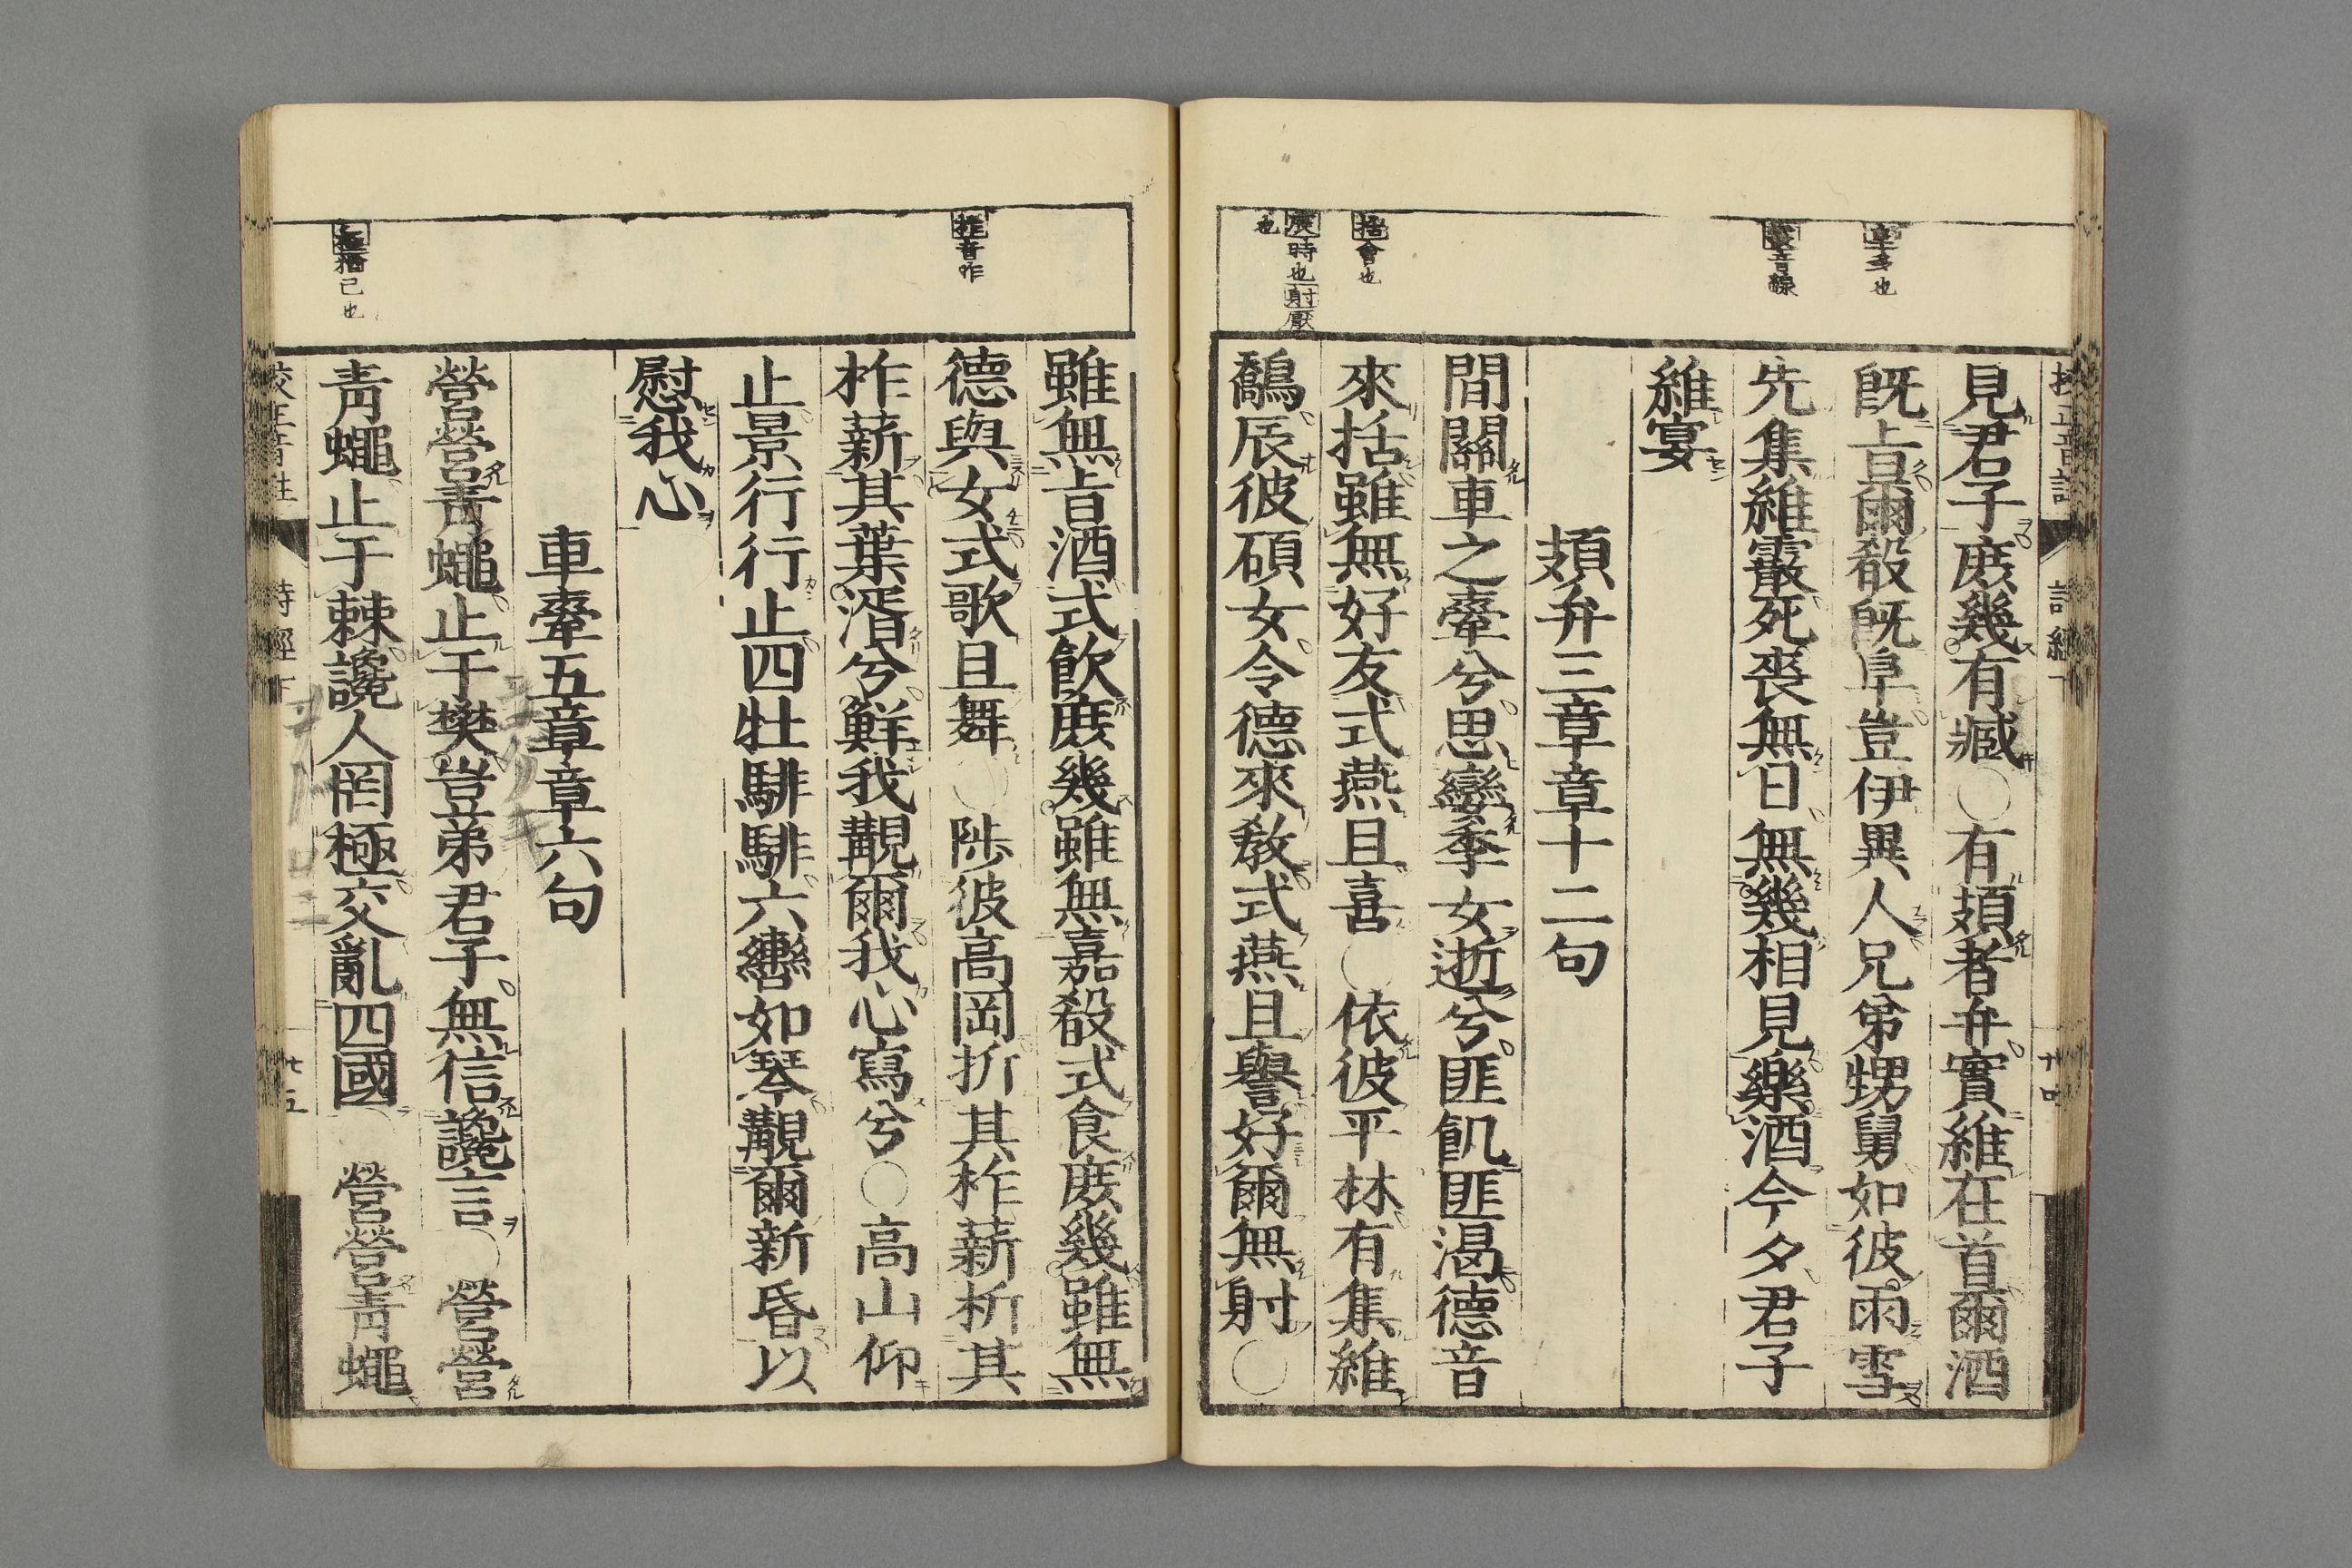 阜多也
霰音線
括會也
辰時也射厭
也
見君子庶幾有臧○有頍者弁實維在首爾酒
旣旨爾殽旣阜豈伊異人兄弟甥舅如彼雨雪
先集維霰死喪無日無幾相見樂酒今夕君子
維宴
頍弁三章章十二句
間關車之舝兮思孌季女逝兮匪飢匪渴德音
來括雖無好友式燕且喜○依彼平林有集維
鷮辰彼碩女令德來敎式燕且譽好爾無射○
柞音昨
極猶己也
雖無旨酒式飮庶幾雖無嘉殽式食庶幾雖無
德與女式歌且舞○陟彼高岡析其柞薪析其
柞薪其葉湑兮鮮我覯爾我心寫兮○高山仰
止景行行止四牡騑騑六轡如琴覯爾新昏以
慰我心
車舝五章章六句
營營靑蠅止于樊豈弟君子無信讒言○營營
靑蠅止于棘讒人罔極交亂四國○營營靑蠅